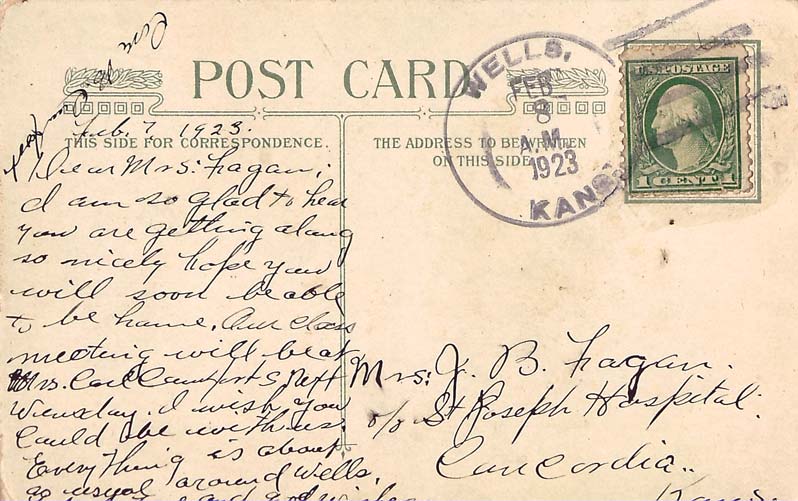 POST CARD
THIS SIDE FOR CORRESPONDENCE.
THE ADDRESS TO BE WRITTEN
ON THIS SIDE
WELLS,
FEB
8
A.M
1923
KANS
U.S. POSTAGE
1 CENT 1
Feb. 7 1923.
Dear Mrs. Fagan;
I am so glad to hear
you are getting along
so nicely hope you
will soon be able
to be home. Our class
meeting will be at
Mrs. Carl Next
Wensday. I wish you
could be with us.
Everything is about
as usual around Wells.
Mrs. J. B. Fagan.
c/o St Joseph Hospital.
Concordia.
Kans.